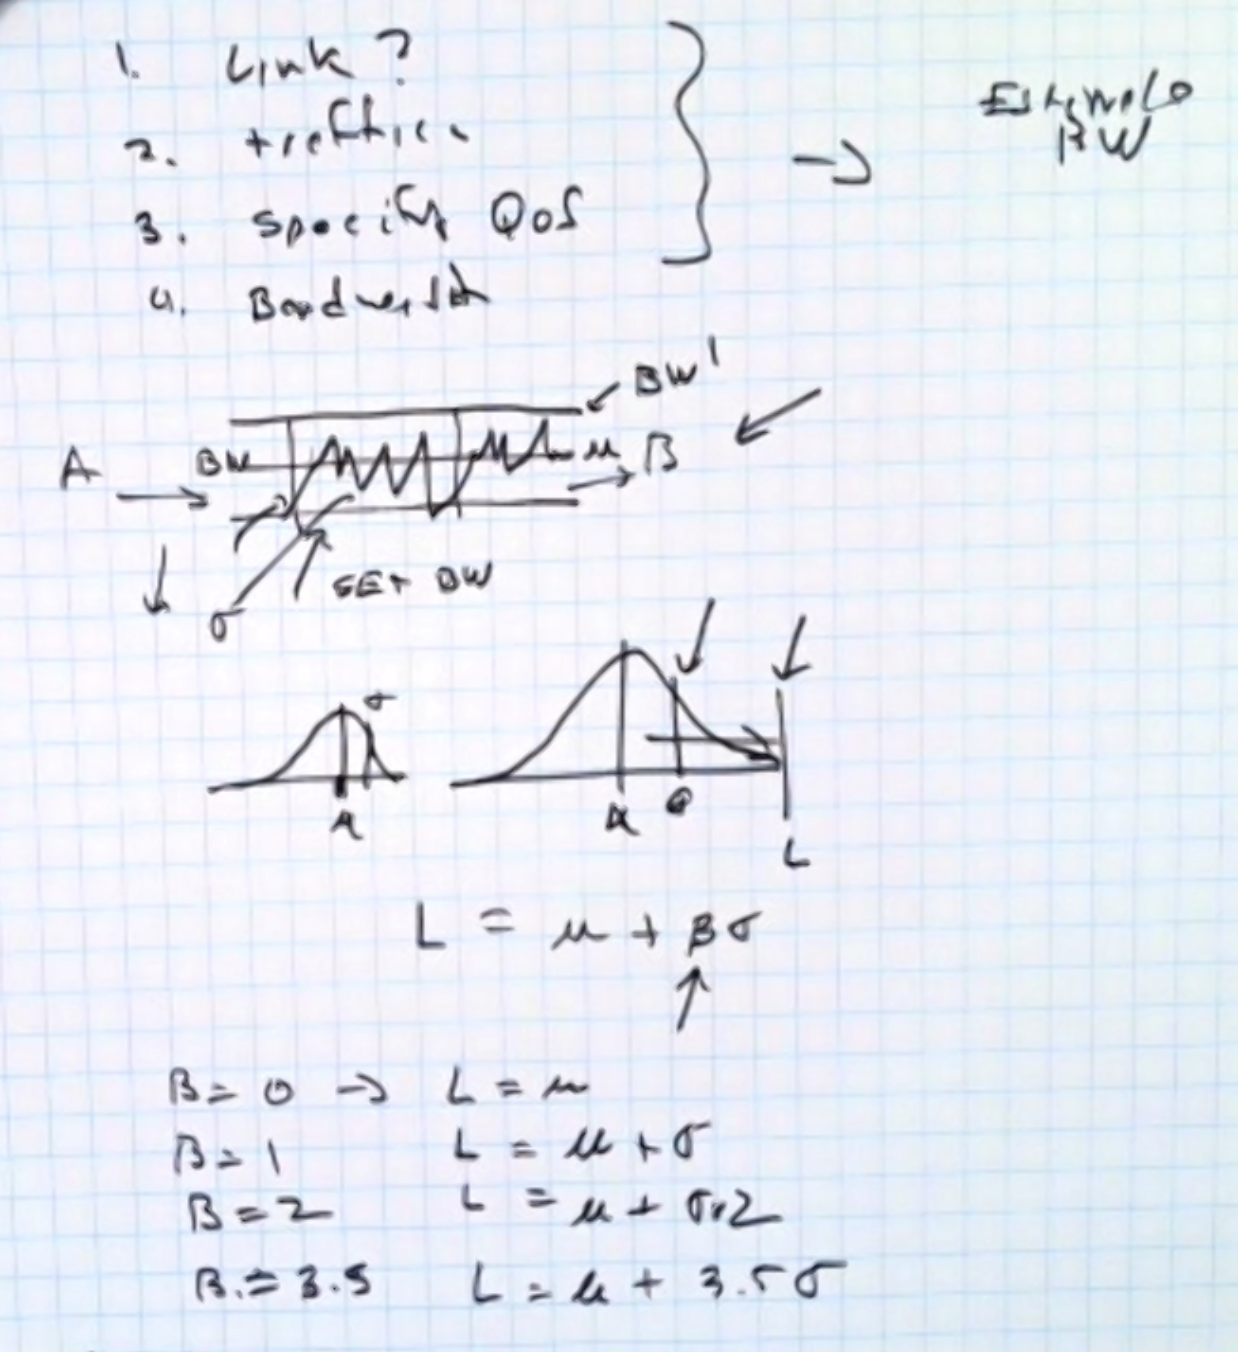 1. Link?
2. traffic
3. Specify QoS
4. Bandwidth
Estimate
BW
BW'
A
BW
μ
B
σ
SET BW
σ
μ
μ
σ
L
L = μ + βσ
B = 0 → L = μ
B = 1 L = μ + σ
B = 2 L = μ + σx2
B = 3.5 L = μ + 3.5σ